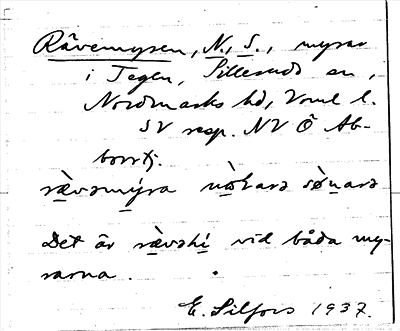 Rävemyren, N., S., myrar
i Tegen, Sillerud sn,
Nordmarks hd, Vrml l.
SV resp. NV Ö Ab-
borrtj.
ræ̀vəmýra nòʟarə sø̀ɳarə
Det är ræ̀vəhi vid båda my-
rarna.
E. Silfors 1937.